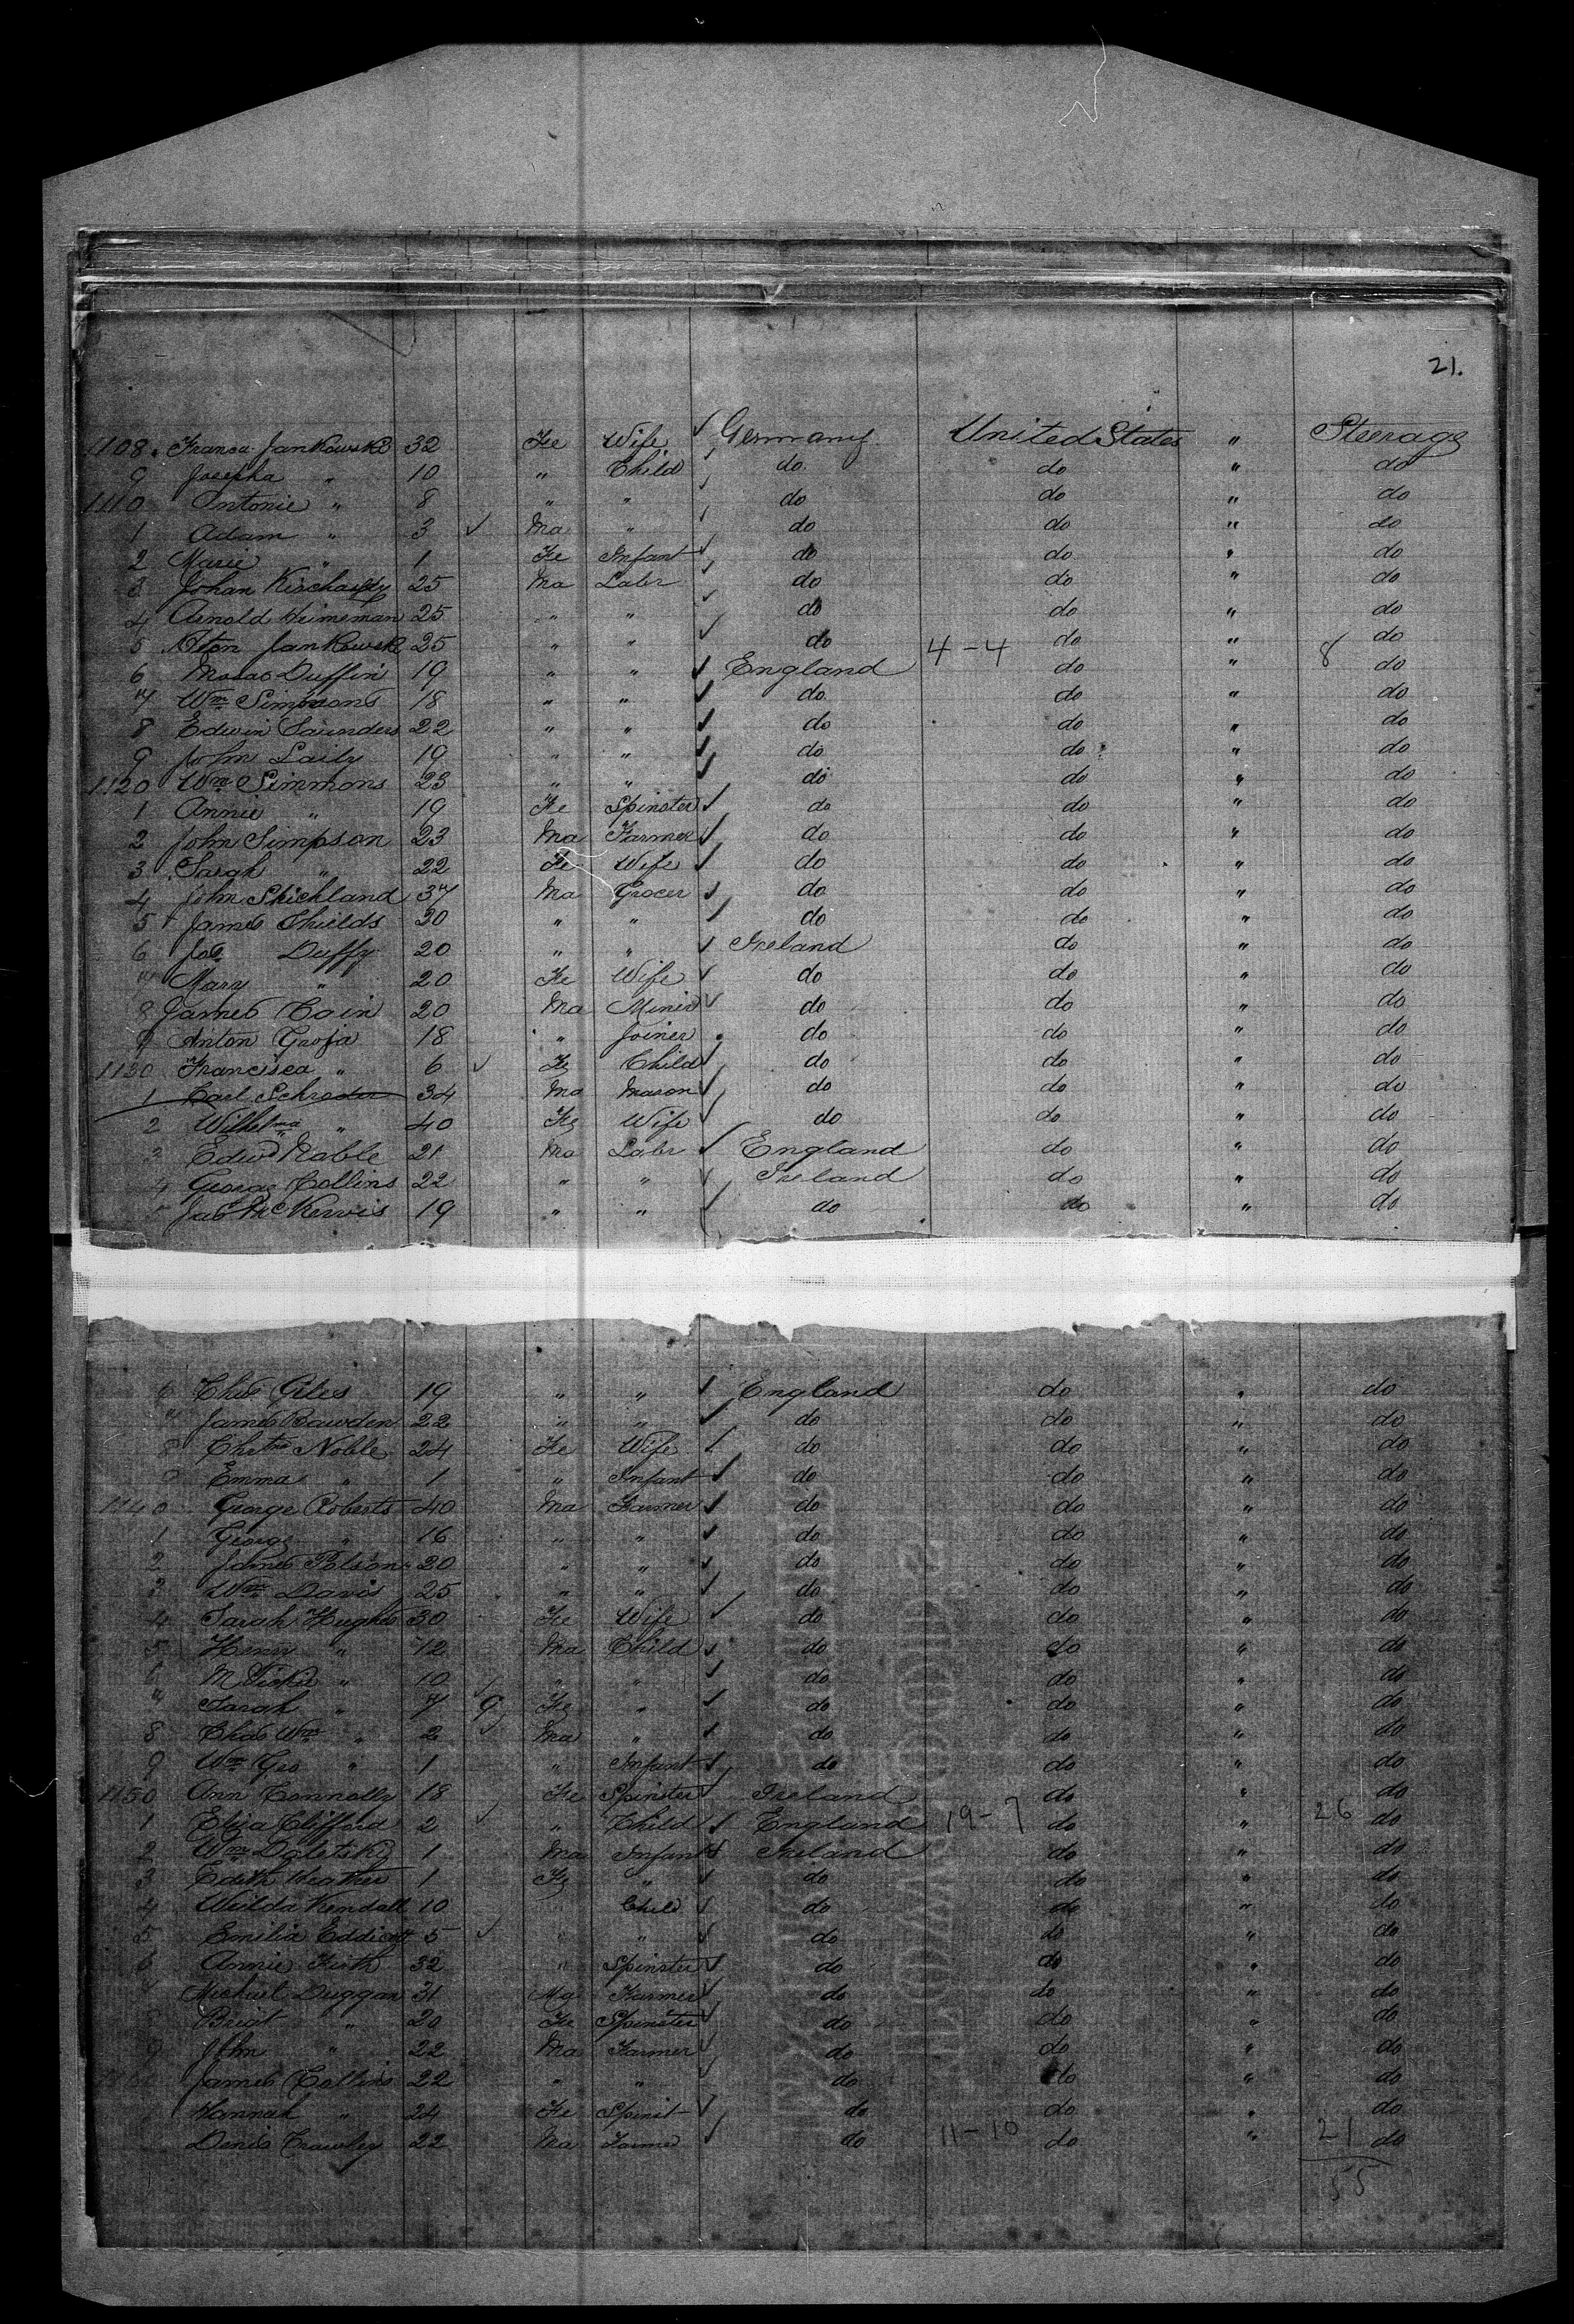 21.
1108. Franca Jankowski 32 Fe Wife ✓ Germany United States " Steerage
9 Josepha " 10 " Child ✓ do do " do
1110 Antonie " 8 " " ✓ do do " do
1 Adam " 3 ✓ Ma " ✓ do do " do
2 Marie " 1 Fe Infant ✓ do do " do
3 Johan 25 Ma Labr do do " do
4 Arnold Heineman 25 " " ✓ do do " do
5 Jankowski 25 " " ✓ do 4-4 do " 8 do
6 Duffin 19 " " ✓ England do " do
7 Wm Simmons 18 " " ✓ do do " do
8 Edwin Saunders 22 " " ✓ do do " do
9 John Laily 19 " " ✓ do do " do
1120 Wm Simmons 23 " " ✓ do do " do
1 Annie " 19 Fe Spinster ✓ do do " do
2 John Simpson 23 Ma Farmer ✓ do do " do
3 Sarah " 22 Fe Wife ✓ do do " do
4 John Stichland 37 Ma Grocer ✓ do do " do
5 James Childs 30 " " ✓ do do " do
6 Jas Duffy 20 " " ✓ Ireland do " do
7 Mary " 20 Fe Wife ✓ do do " do
8 James Cain 20 Ma Miner ✓ do do " do
9 Anton Groja 18 " Joiner do do " do
1130 Francisca " 6 ✓ Fe Child ✓ do do " do
1 Carl Schroder 34 Ma Mason ✓ do do " do
2 Wilhelma " 40 Fe Wife ✓ do do " do
3 Edwd Nable 21 Ma Labr ✓ England do " do
4 George Collins 22 " " ✓ Ireland do " do
5 Jas McKervis 19 " " ✓ do do " do
6 Chas Giles 19 " " ✓ England do " do
7 James Bawden 22 " " ✓ do do " do
8 Noble 24 Fe Wife ✓ do do " do
9 Emma " 1 " Infant ✓ do do " do
1140 George Roberts 40 Ma Farmer ✓ do do " do
1 George " 16 " " ✓ do do " do
2 James Polson 20 " " ✓ do do " do
3 Wm Davis 25 " " ✓ do do " do
4 Sarah Hughes 30 Fe Wife ✓ do do " do
5 Henry " 12 Ma Child ✓ do do " do
6 M " 10 ✓ " " ✓ do do " do
7 Sarah " 7 9 Fe " ✓ do do " do
8 Chas Wm " 2 ✓ Ma " ✓ do do " do
9 Wm Geo " 1 " Infant ✓ do do " do
1150 Ann Connolly 18 Fe Spinster ✓ Ireland do " do
1 Eliza Clifford 2 ✓ " Child ✓ England 19-7 do " 26 do
2 Wm 1 Ma Infant ✓ Ireland do " do
3 Edith Heather 1 Fe " ✓ do do " do
4 Kendall 10 Child ✓ do do " do
5 Emilia Eddicott 5 ✓ " " ✓ do do " do
6 Annie Firth 32 " Spinster ✓ do do " do
7 Michael Duggan 31 Ma Farmer ✓ do do " do
8 Brigt " 20 Fe Spinster ✓ do do " do
9 John " 22 Ma Farmer ✓ do do " do
1160 James Collins 22 " " ✓ do do " do
Hannah " 24 Fe Spinst ✓ do do " do
Denis Crawley 22 Ma Farmer ✓ do 11-10 do " 21 do
55